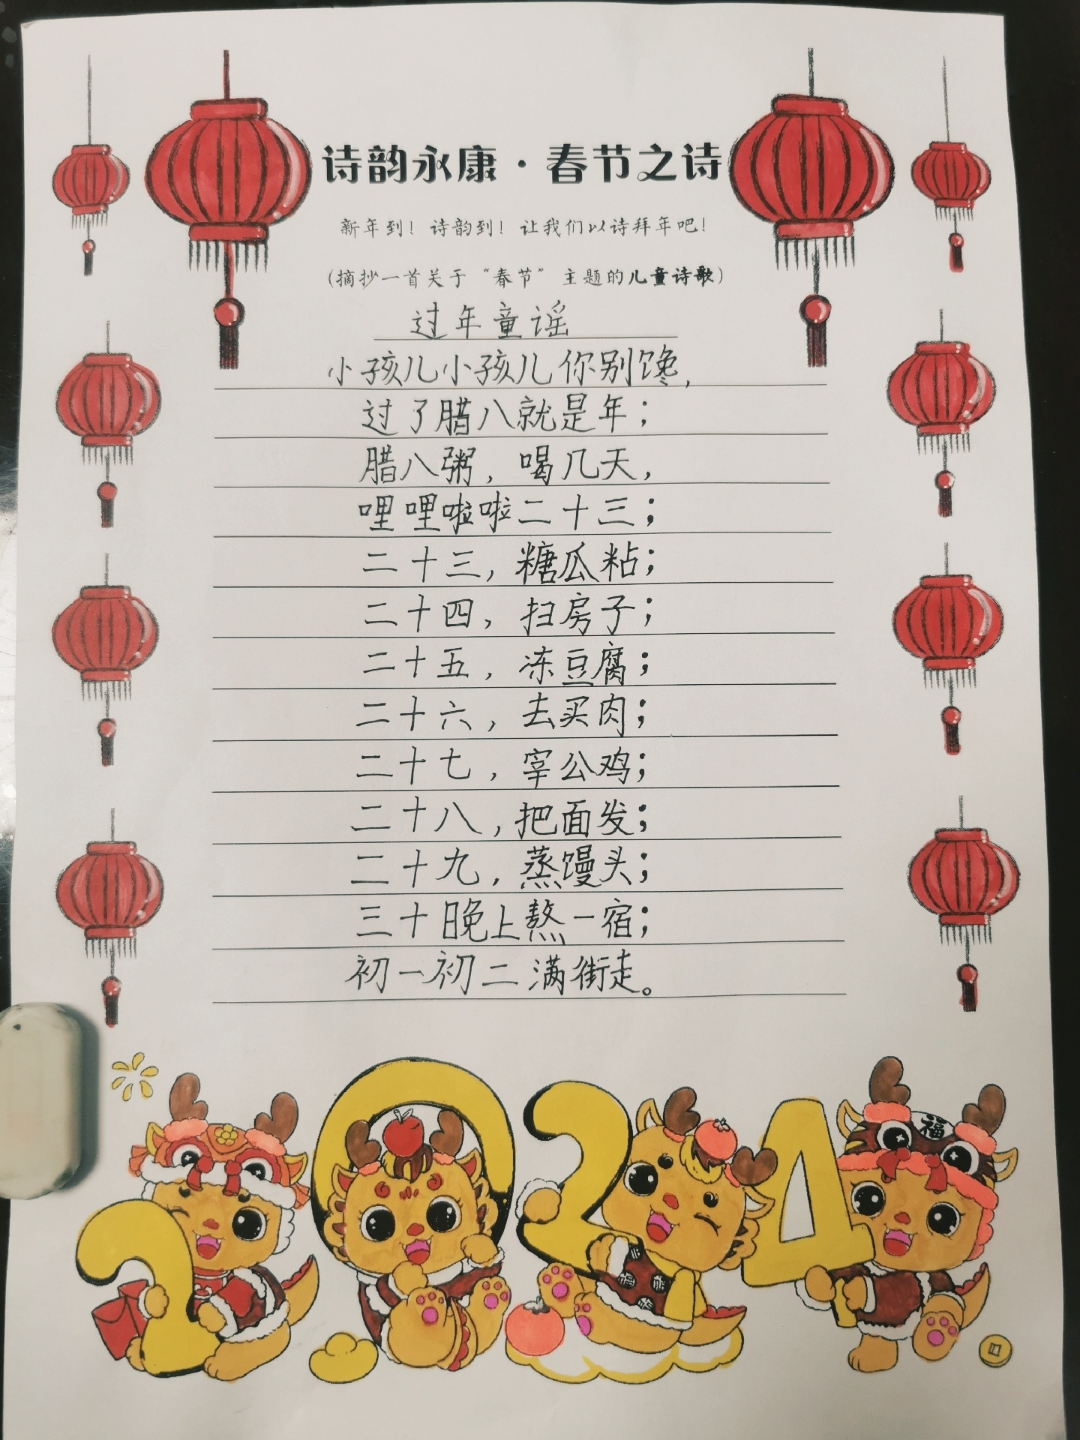 诗韵永康·春节之诗
新年到！诗韵到！让我们以诗拜年吧！
(摘抄一首关于“春节”主题的儿童诗歌)
过年童谣
小孩儿小孩儿你别馋，
过了腊八就是年；
腊八粥，喝几天，
哩哩啦啦二十三；
二十三，糖瓜粘；
二十四，扫房子；
二十五，冻豆腐；
二十六，去买肉；
二十七，宰公鸡；
二十八，把面发；
二十九，蒸馒头；
三十晚上熬一宿；
初一初二满街走。
2024
福